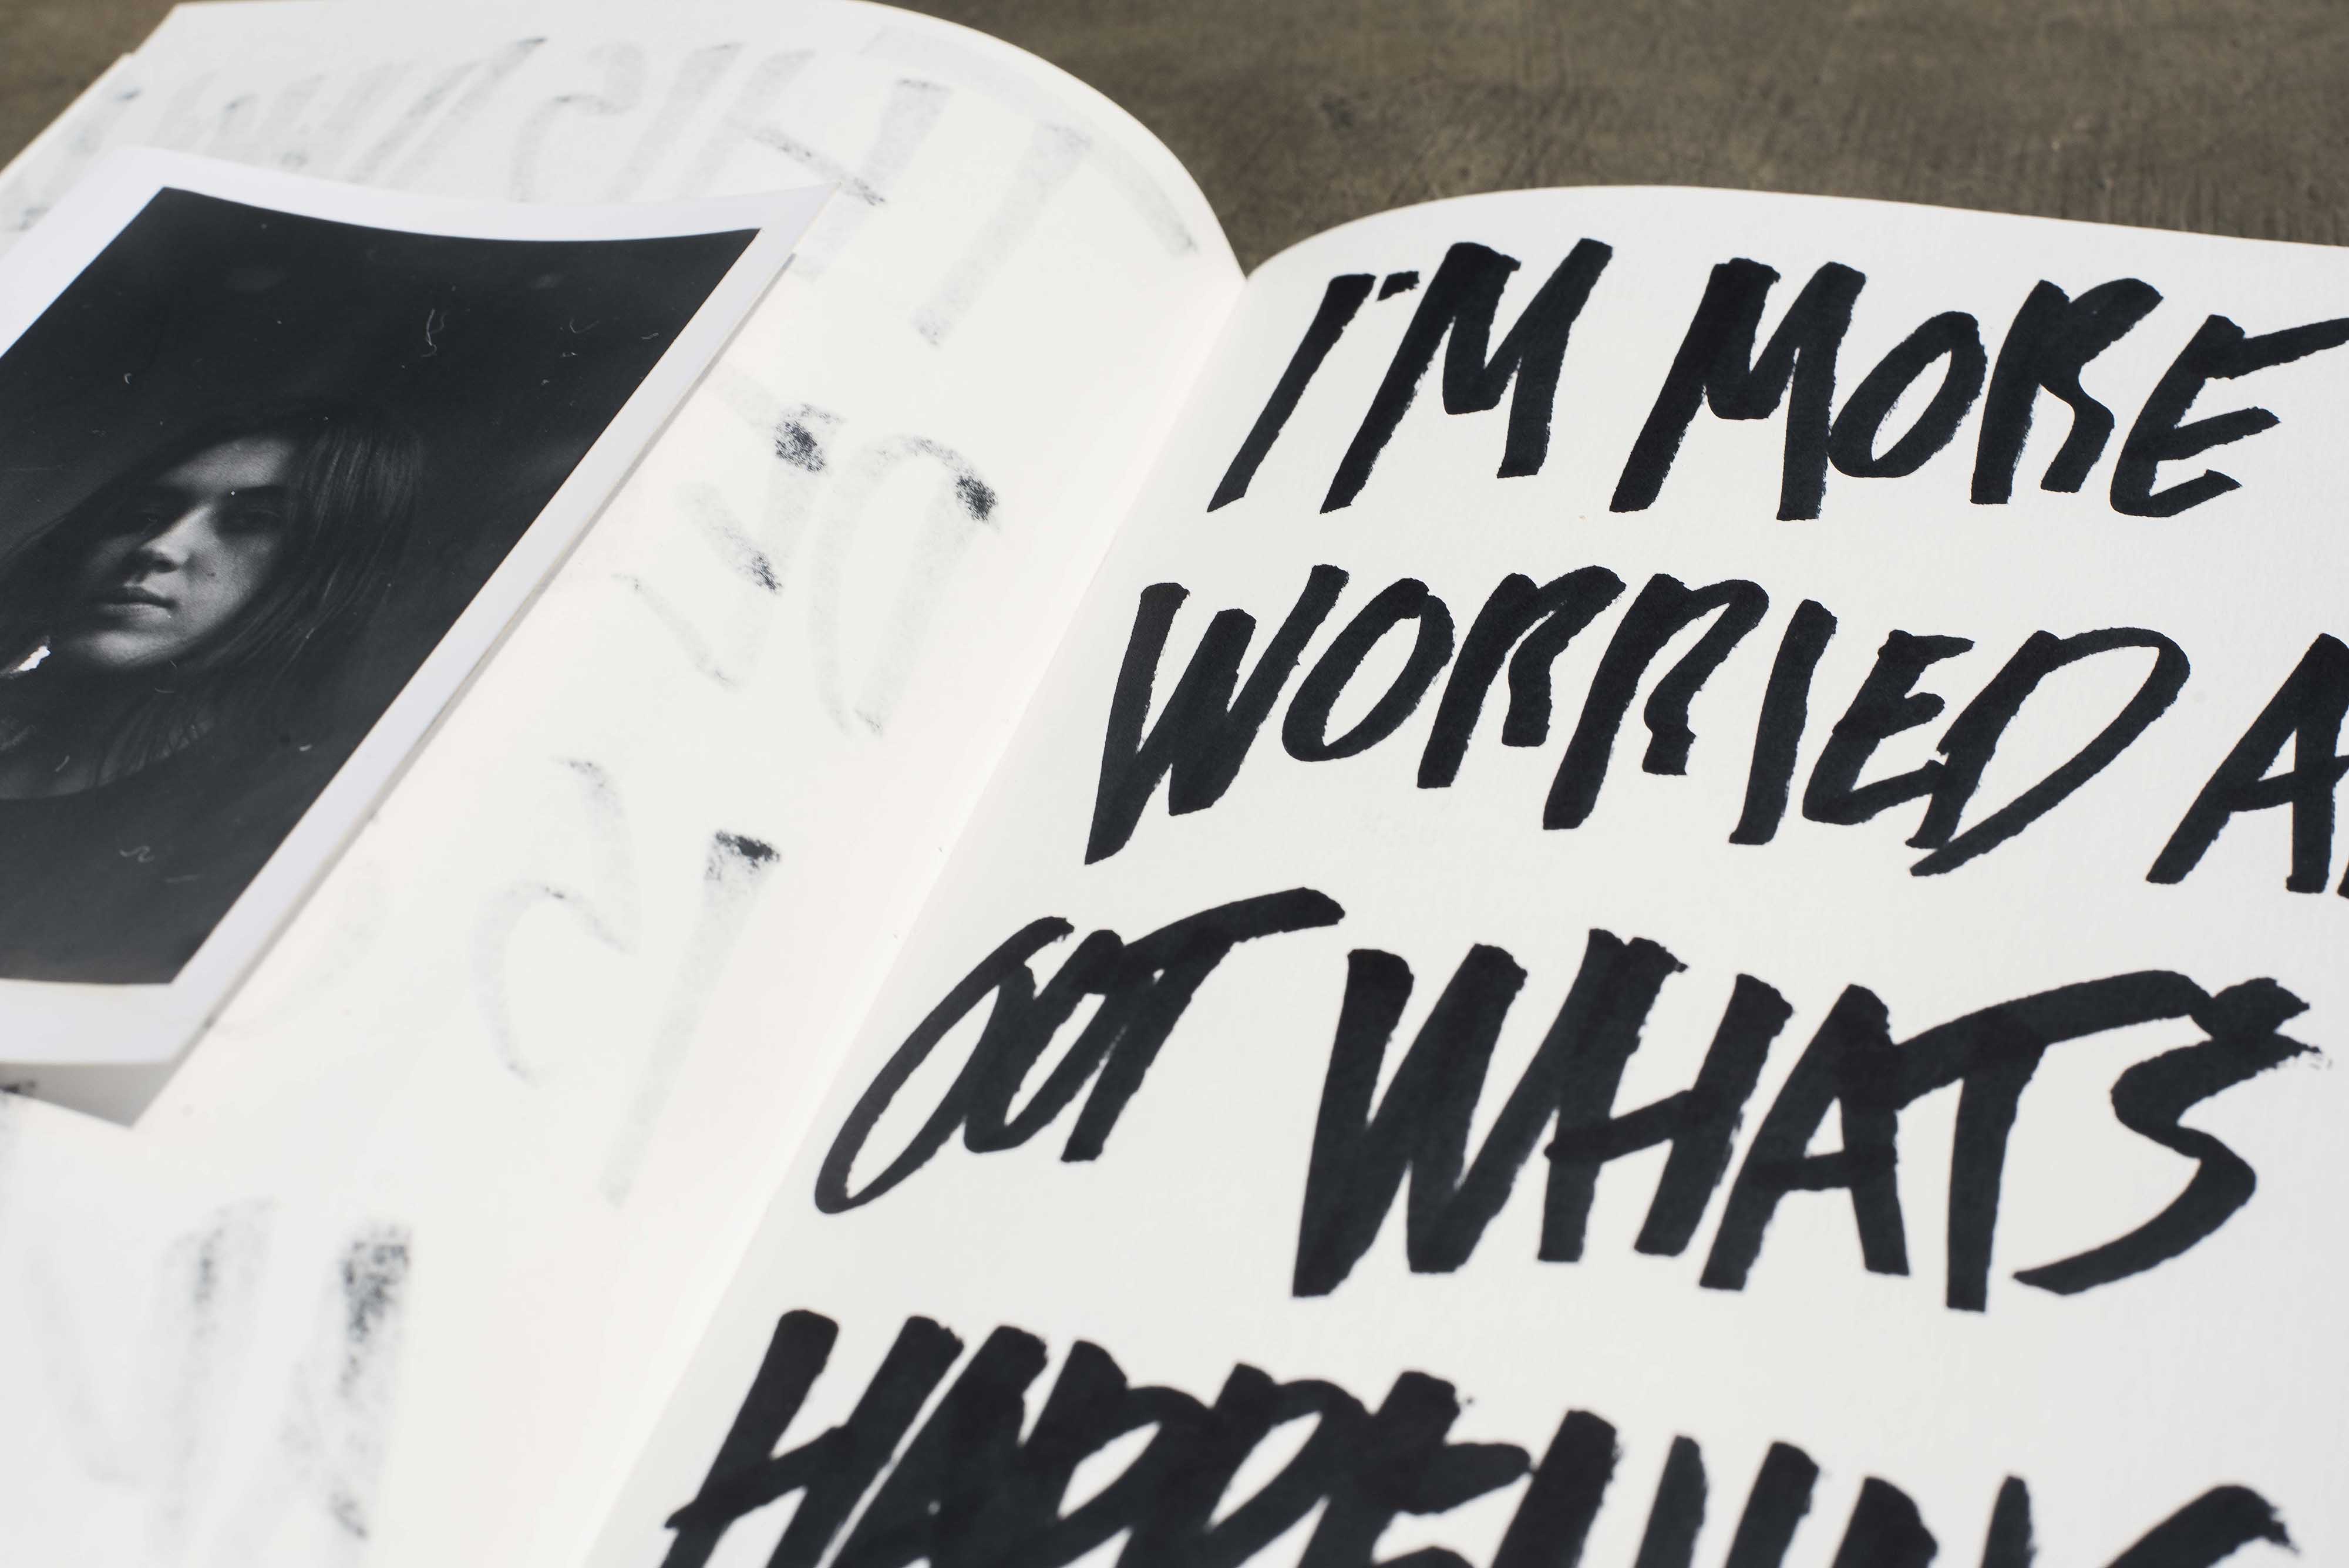 I'M MORE
WORRIED A
OUT WHATS
HAPPENING